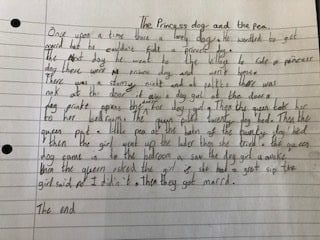 The Princess dog and the pea.
Once upon a time there a lonly dog. he wanted to get
marrid but he couldn't find a princess dog.
The next day he went to the village to find a princess
dog there were no princess dog and went home.
There was a stormy night and a rattle there was
nok at the door it was a dog girl at the door.
dog prince opens the for dog girl. Then the queen took her
to her bedroom. The queen piled twenty dog bed. Then the
queen put a little pea at the botm of the twenty dog bed
then the girl went up the lader then she tried. the queen
dog came in to the bedroom a saw the dog girl awake
then the queen asked the girl if she had a great sip the
girl said no I didn't. Then they got marrd.
The end